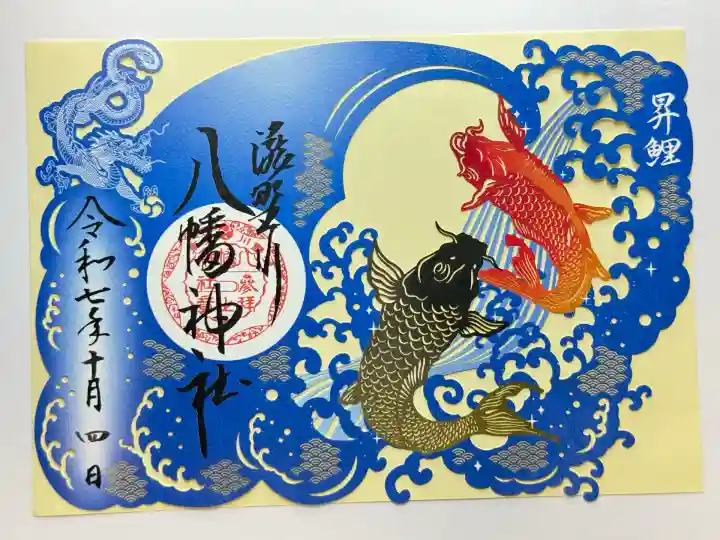 昇鯉
滝野川
八幡神社
参拝
令和七年十月四日